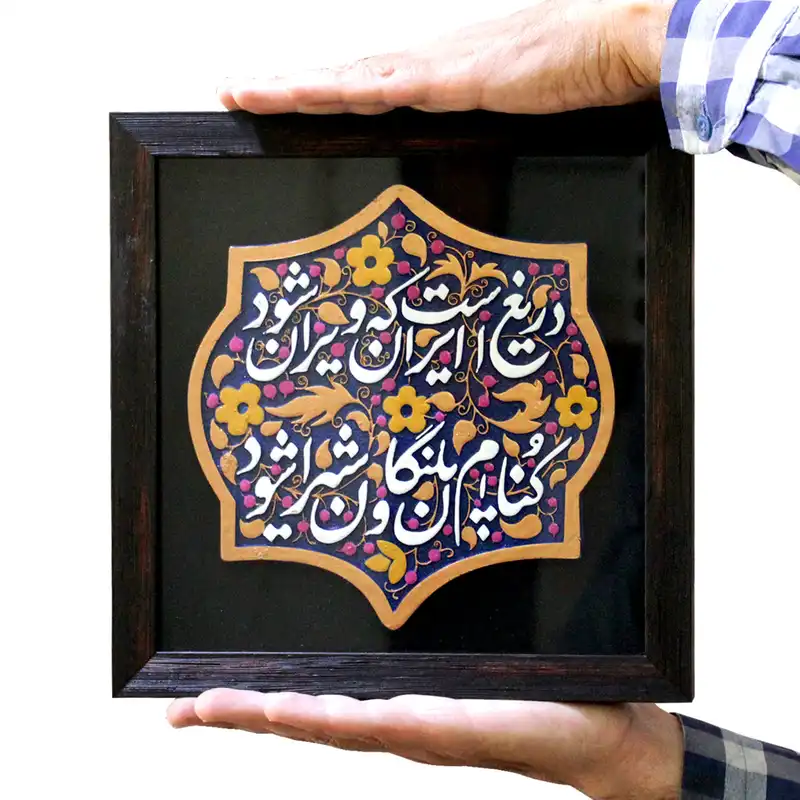 دریغ است ایران که ویران شود
کنام پلنگان و شیران شود